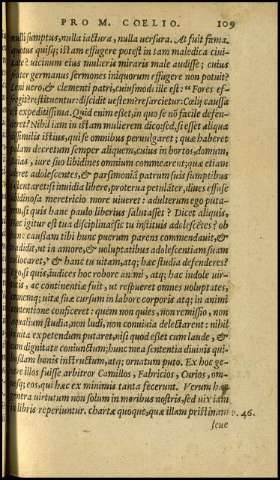 PRO M. COELIO. 109
nulli sumptus, nulla iactura, nulla uersura. At fuit fama.
quotus quisq; istam effugere potest in tam maledica ciui-
tate? uicinum eius mulieris miraris male audisse; cuius
frater germanus sermones iniquorum effugere non potuit?
Leni uero, & clementi patri, cuiusmodi ille est: Fores ef-
fregit? restituentur: discidit uestem? resarcietur: Cœlij caussa
est expeditissima. Quid enim esset, in quo se nō facile defen-
deret? Nihil iam in istam mulierem dico: sed, si esset aliqua
dissimilis istius, quæ se omnibus peruulgaret; quæ haberet
palam decretum semper aliquem; cuius in hortos, domum,
Baias, iure suo libidines omnium commearent; quæ etiam
aleret adolescentes, & parsimoniā patrum suis sumptibus
sustentaret: si uidua libere, proterua petulāter, diues effuse
libidinosa meretricio more uiueret: adulterum ego puta-
rem, si quis hanc paulo liberius salutasset? Dicet aliquis,
hæc igitur est tua disciplina? sic tu instituis adolescētes? ob
hanc caussam tibi hunc puerum parens commendauit, &
tradidit, ut in amore, & uoluptatibus adolescentiam suam
collocaret, & hanc tu uitam, atq; hæc studia defenderes?
Ego, si quis, iudices hoc robore animi, atq; hac indole uir-
tutis, ac continentiæ fuit, ut respueret omnes uoluptates,
omnemq; uitæ suæ cursum in labore corporis atq; in animi
contentione conficeret: quem non quies, non remissio, non
æqualium studia, non ludi, non conuiuia delectarent: nihil
in uita expetendum putaret, nisi quod esset cum laude, &
cum dignitate coniunctum; hunc mea sententia diuinis qui-
busdam bonis instructum, atq; ornatum puto. Ex hoc ge-
nere illos fuisse arbitror Camillos, Fabricios, Curios, om-
nesq; eos, qui hæc ex minimis tanta fecerunt. Verum hæc
genera uirtutum non solum in moribus nostris, sed uix iam
in libris reperiuntur. chartæ quoque, quæ illam pristinam
p. 46.
seue